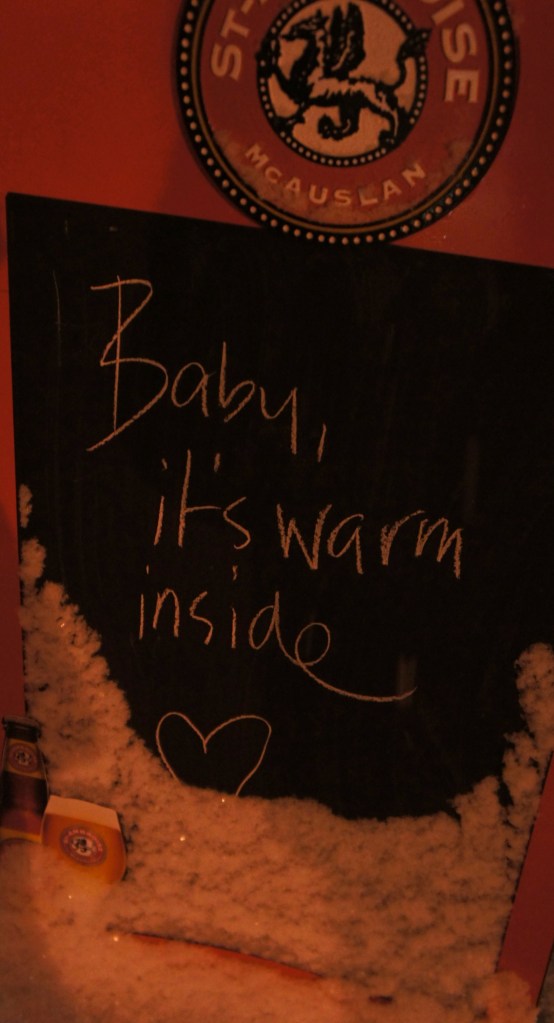 McAUSLAN
Baby,
it's warm
inside